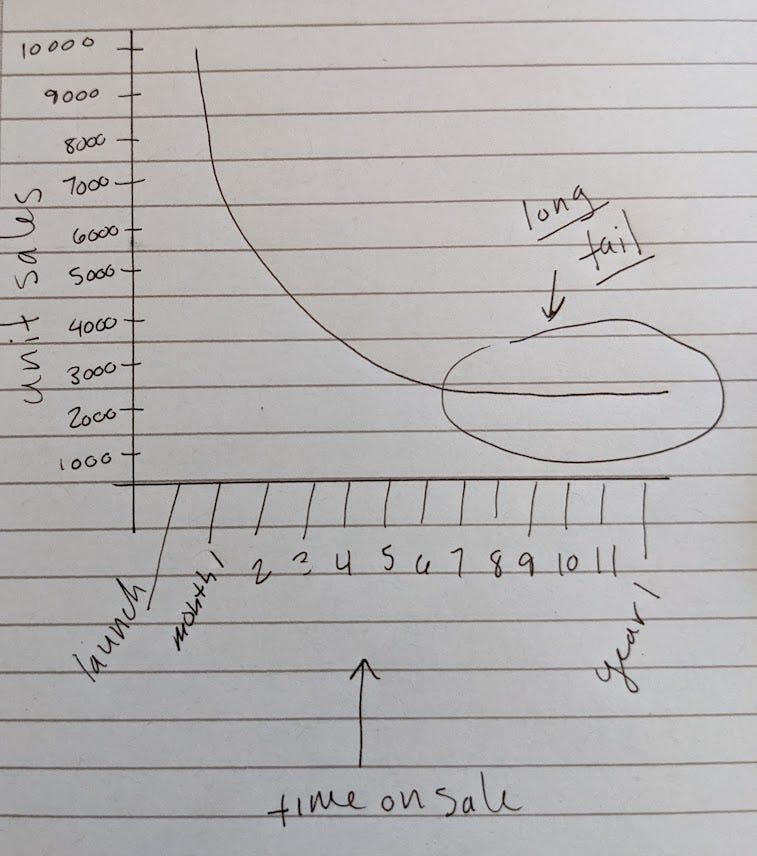 10000
9000
8000
7000
6000
5000
4000
3000
2000
1000
unit sales
long
tail
launch
month 1
2
3
4
5
6
7
8
9
10
11
year 1
time on sale